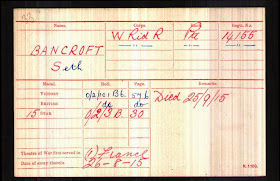 Name. Corps. Rank. Regtl. No.
BANCROFT W Rid R Pte 14155
Seth
Medal. Roll. Page. Remarks.
VICTORY O/2/101 B6 546 Died 25/9/15
BRITISH do do
15 STAR O/2/3 B 30
Theatre of War first served in (1) France
Date of entry therein 26-8-15
K. 1380.